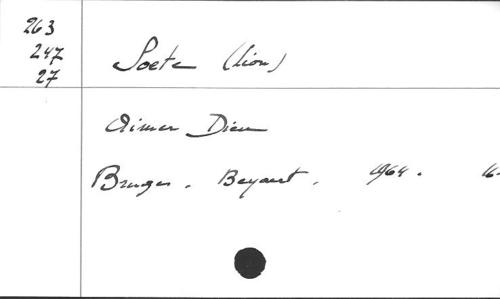 263
247
27
Soete (Lion)
Aimer Dieu
Bruges. Beyaert. 1964. 16.